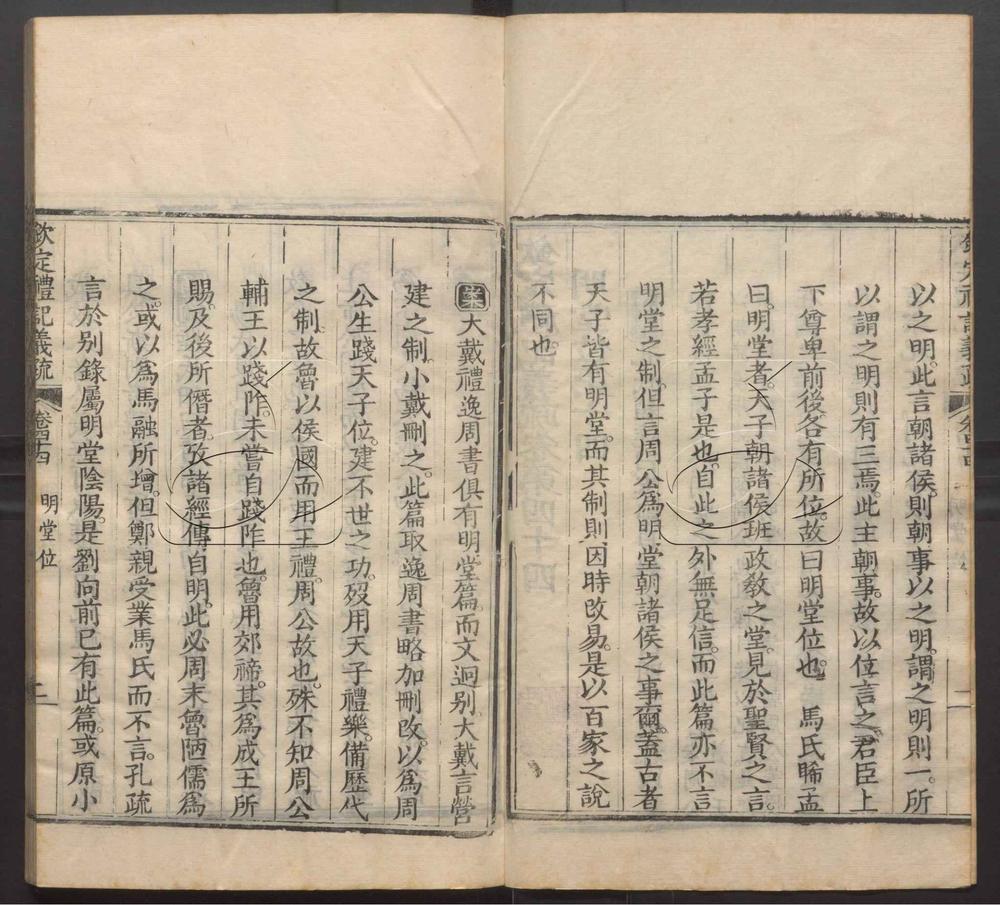 以之明。此言朝諸侯。則朝事以之明。謂之明則一。所
以謂之明則有三焉。此主朝事。故以位言之。君臣上
下尊卑前後各有所位。故曰明堂位也。 馬氏睎孟
曰。明堂者。天子朝諸侯班政敎之堂。見於聖賢之言。
若孝經孟子是也。自此之外無足信。而此篇亦不言
明堂之制。但言周公為明堂朝諸侯之事爾。蓋古者
天子皆有明堂。而其制則因時改易。是以百家之說
不同也。
案大戴禮逸周書俱有明堂篇。而文迥别。大戴言營
建之制。小戴刪之。此篇取逸周書略加刪改。以為周
公生踐天子位。建不世之功。歿用天子禮樂。備歷代
之制。故魯以侯國而用王禮。周公故也。殊不知周公
輔王以踐阼。未嘗自踐阼也。魯用郊禘。其為成王所
賜。及後所僭者。攷諸經傳自明。此必周末魯陋儒為
之。或以為馬融所增。但鄭親受業馬氏而不言。孔疏
言於别錄屬明堂陰陽。是劉向前已有此篇。或原小
欽定禮記義疏 卷四十四 明堂位 二